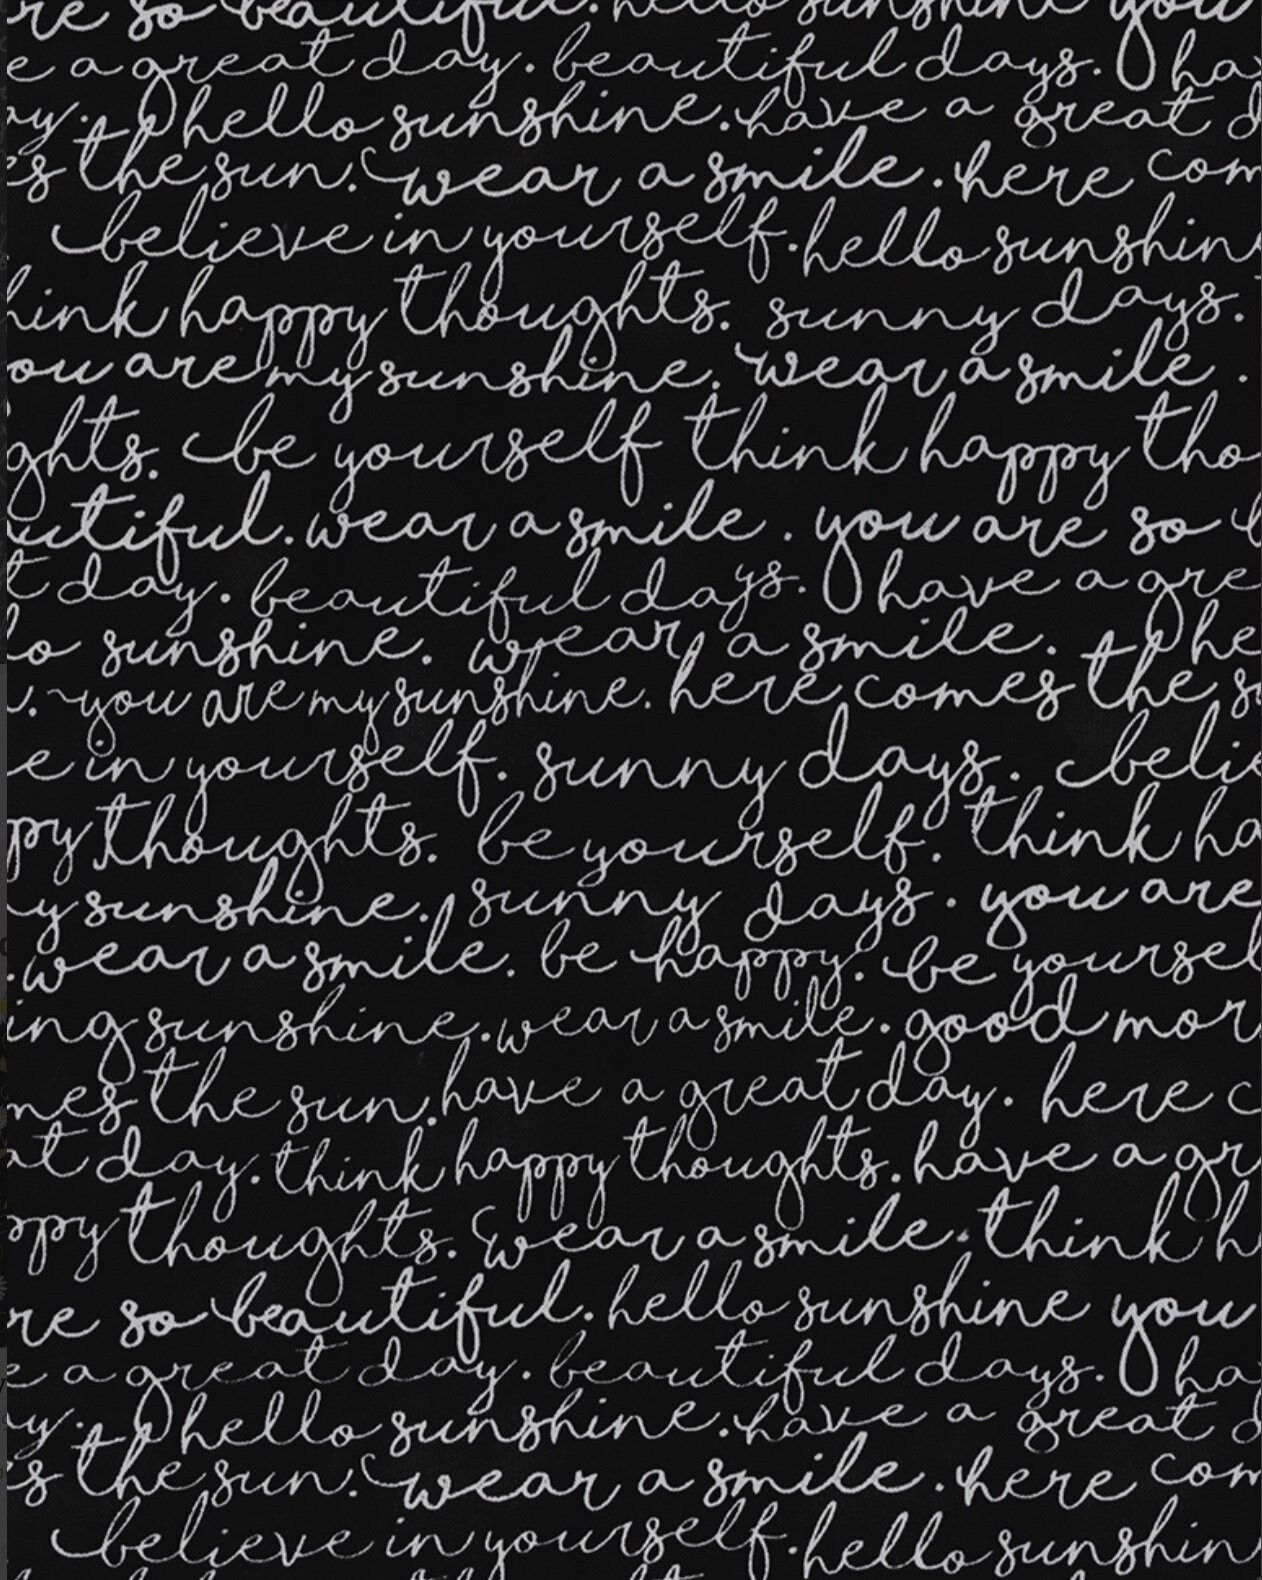 re so beautiful. hello sunshine you
e a great day. beautiful days. ha
ay. hello sunshine. have a great d
es the sun. wear a smile. here com
believe in yourself. hello sunshin
hink happy thoughts. sunny days.
ou are my sunshine. wear a smile.
ghts. be yourself think happy tho
utiful. wear a smile. you are so b
t day. beautiful days. have a gre
lo sunshine. wear a smile. he
. you are my sunshine. here comes the su
e in yourself. sunny days. belie
py thoughts. be yourself. think ha
y sunshine. sunny days. you are
. wear a smile. be happy. be yoursel
ing sunshine. wear a smile. good mor
mes the sun. have a great day. here c
at day. think happy thoughts. have a gr
ppy thoughts. wear a smile. think h
re so beautiful. hello sunshine you
e a great day. beautiful days. ha
ay. hello sunshine. have a great d
es the sun. wear a smile. here com
believe in yourself. hello sunshin